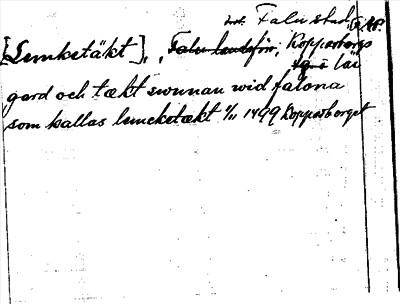 Falu stad,
[Lemketäkt], Falu landsför, Kopparbergs
län
gard och tækt swnnan wid falona
som kallas lemcketækt 1/11 1499 Kopparberget